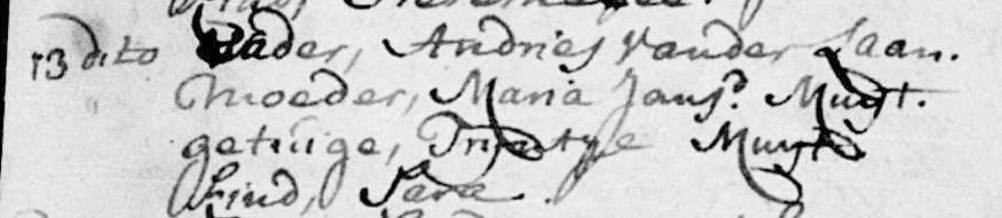 13 dito Vader, Andries vander Laan.
Moeder, Maria Jans.d Muyt.
getuige, Trijntye Muyt.
Kind, Sara.